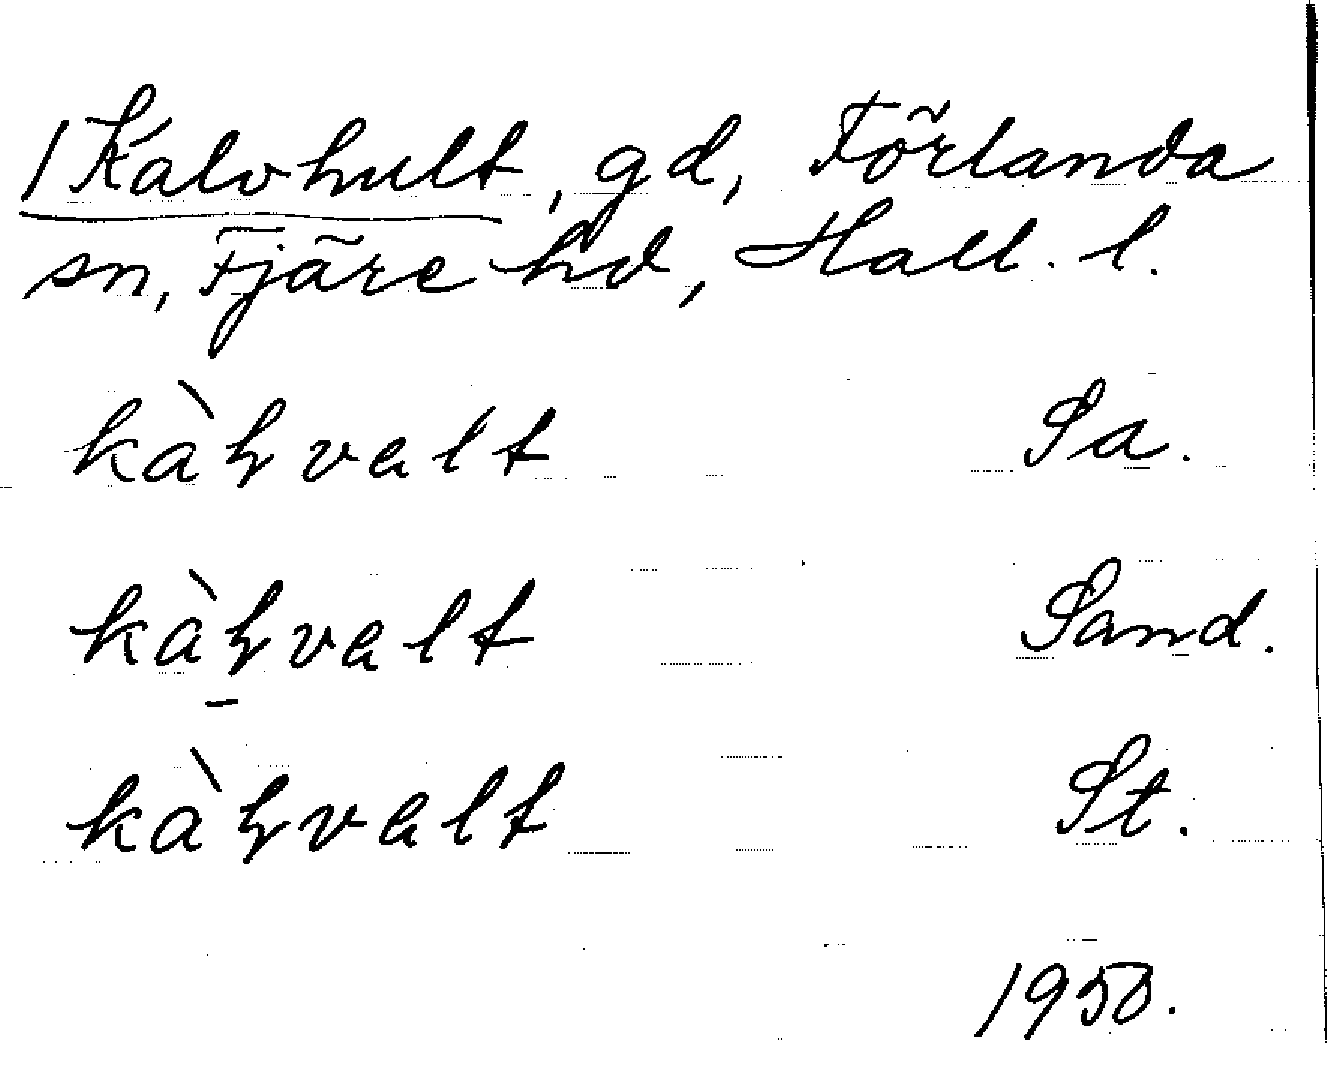 1 Kalvhult, gd, Förlanda
sn, Fjäre hd, Hall. l.
kàꜧvalt Sa.
kàꜧvalt Sand.
kàꜧvalt St.
1950.